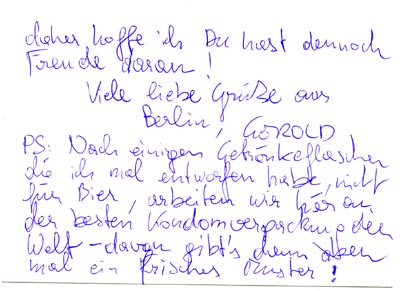 daher hoffe ich Du hast dennoch
Freude daran!
Viele liebe Grüße aus
Berlin, GEROLD
PS: Nach einigen Getränkeflaschen
die ich mal entworfen habe, nicht
für Bier, arbeiten wir hier an
der besten Kondomverpackung der
Welt - davon gibt's dann eben
mal ein frisches Muster!